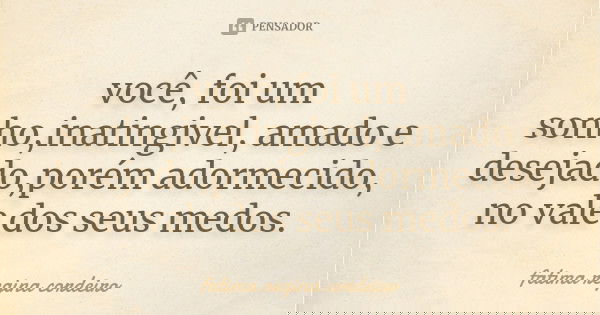 PENSADOR
você, foi um
sonho,inatingivel, amado e
desejado,porém adormecido,
no vale dos seus medos.
fátima regina cordeiro